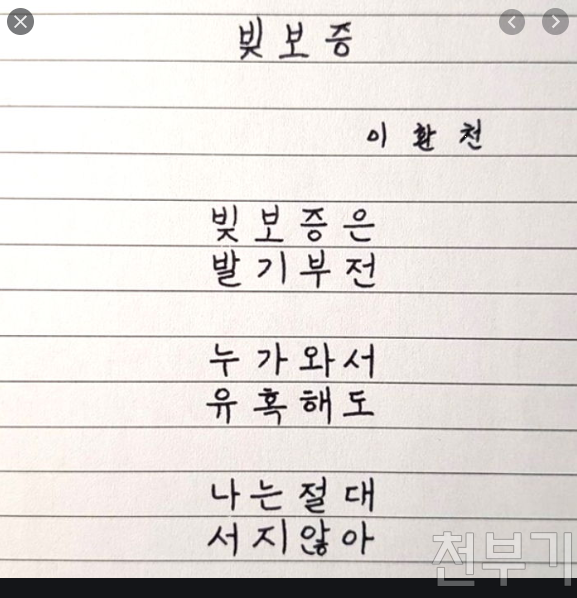 빚 보 증
이 환 천
빚 보 증 은
발 기 부 전
누 가 와 서
유 혹 해 도
나 는 절 대
서 지 않 아
천부기